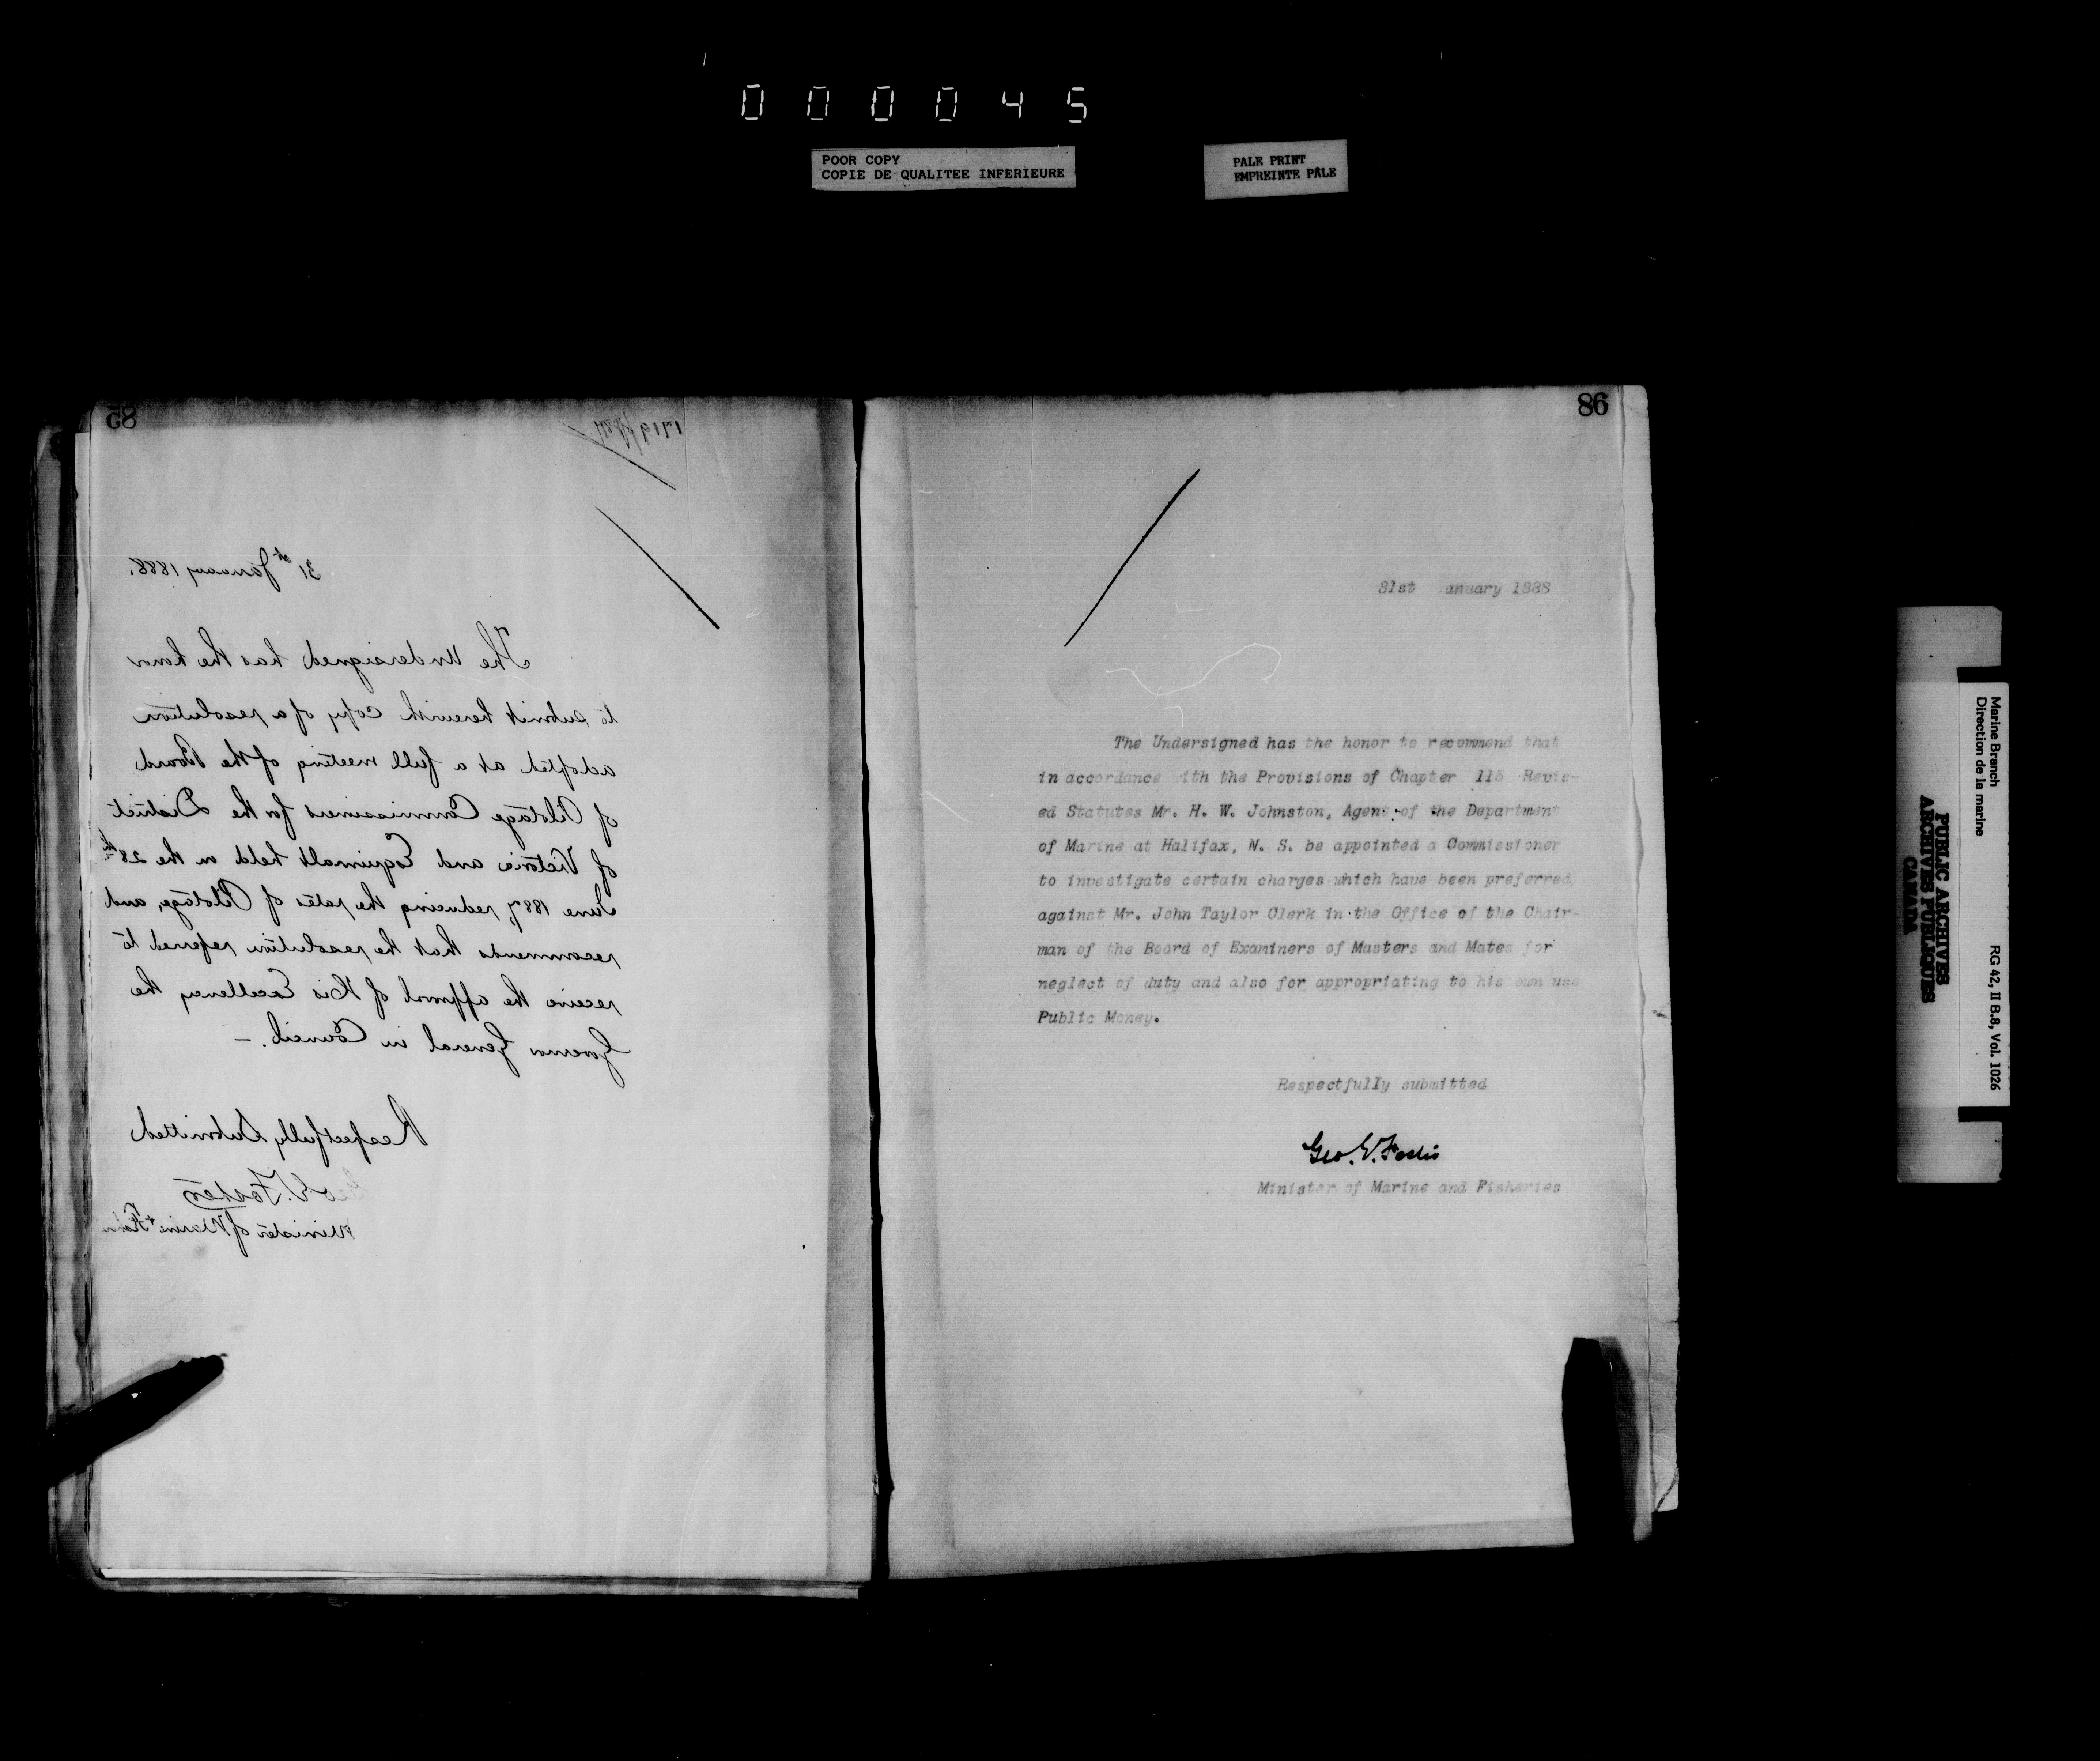 000045
POOR COPY
COPIE DE QUALITEE INFERIEURE
PALE PRINT
EMPREINTE PÂLE
85
31st January 1888.
The Undersigned has the honor
to submit herewith copy of a resolution
adopted at a full meeting of the Board
of Pilotage Commissioners for the District
of Victoria and Esquimalt held on the 28th
June 1887, reducing the rates of Pilotage, and
recommends that the resolution referred to
receive the approval of His Excellency the
Governor General in Council. —
Respectfully Submitted
Geo E. Foster
Minister of Marine & Fish
86
31st anuary 1888
The Undersigned has the honor to recommend that
in accordance with the Provisions of Chapter 115 Revis-
ed Statutes Mr. H. W. Johnston, Agent of the Department
of Marine at Halifax, N. S. be appointed a Commissioner
to investigate certain charges which have been preferred
against Mr. John Taylor Clerk in the Office of the Chair-
man of the Board of Examiners of Masters and Mates for
neglect of duty and also for appropriating to his own use
Public Money.
Respectfully submitted
Geo. E. Foster
Minister of Marine and Fisheries
Marine Branch
Direction de la marine
RG 42, II B.8, Vol. 1026
PUBLIC ARCHIVES
ARCHIVES PUBLIQUES
CANADA